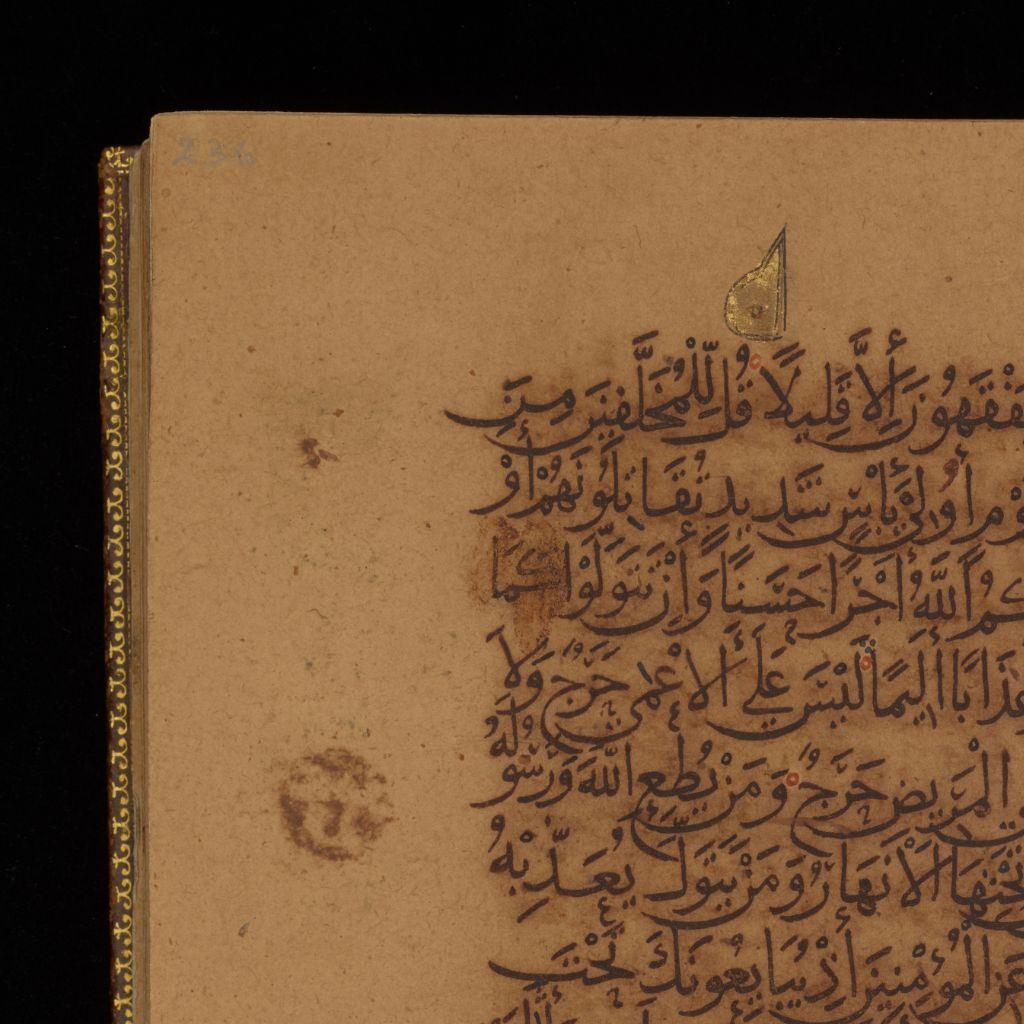 236
يَفْقَهُونَ إِلَّا قَلِيلًا قُل لِّلْمُخَلَّفِينَ مِنَ
قَوْمٍ أُولِي بَأْسٍ شَدِيدٍ تُقَاتِلُونَهُمْ أَوْ
كُمُ اللَّهُ أَجْرًا حَسَنًا وَإِن تَتَوَلَّوْا كَمَا
عَذَابًا أَلِيمًا لَيْسَ عَلَى الْأَعْمَى حَرَجٌ وَلَا
الْمَرِيضِ حَرَجٌ وَمَنْ يُطِعِ اللَّهَ وَرَسُولَهُ
تَحْتِهَا الْأَنْهَارُ وَمَنْ يَتَوَلَّ يُعَذِّبْهُ
عَنِ الْمُؤْمِنِينَ إِذْ يُبَايِعُونَكَ تَحْتَ